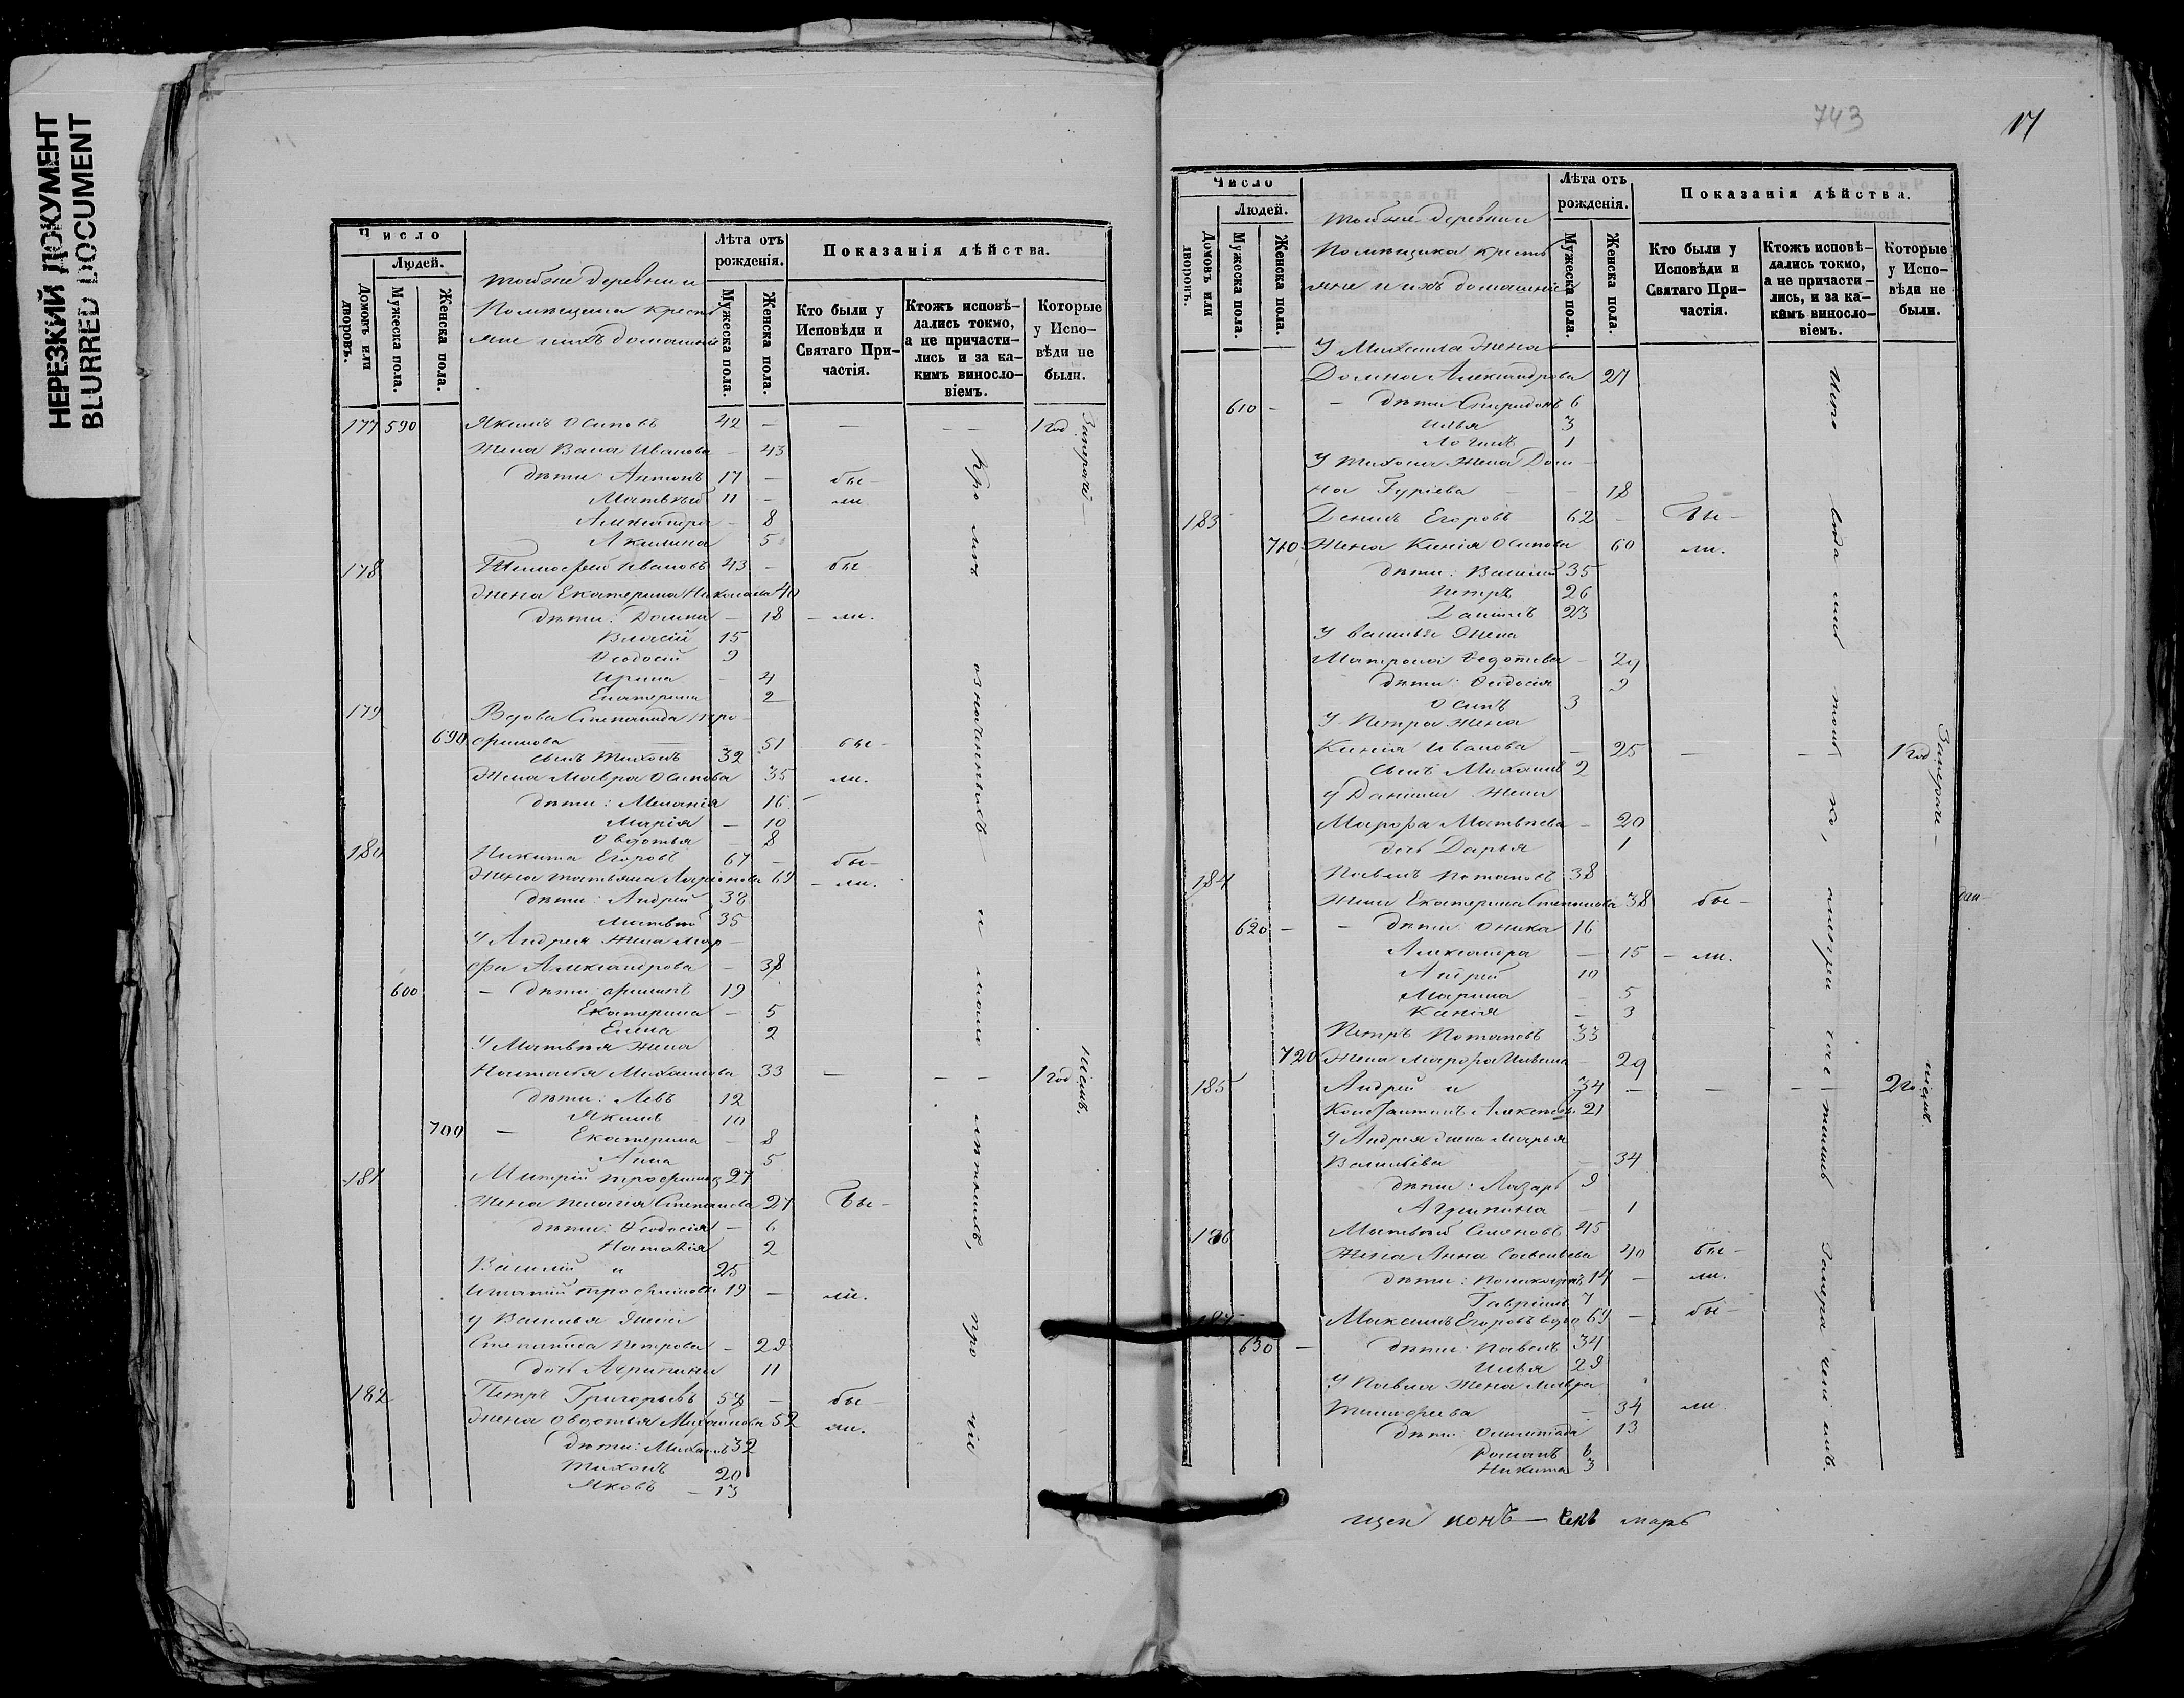 НЕРЕЗКИЙ ДОКУМЕНТ
BLURRED DOCUMENT
Число
Людей.
Домовъ или дворовъ.
Мужеска пола.
Женска пола.
тойже деревни
Помещика кресть
яне и ихъ домашніе
Лѣта отъ рожденія.
Мужеска пола.
Женска пола.
Показанія дѣйства.
Кто были у Исповѣди и Святаго При-
частія.
Ктожъ исповѣ-
дались токмо,
а не причасти-
лись и за ка-
кимъ виносло-
віемъ.
Которые
у Испо-
вѣди не
были.
177 590 Якимъ Осиповъ 42 — — — 1 год
Жена Васа Иванова — 43
дѣти: Антонъ 17 — бы-
Матвѣй 11 — ли
Александра — 8
Акилина 5
178 Тимофей Ивановъ 43 — бы
Жена Екатерина Николаева 40
дѣти: Домна — 18 — ли.
Власій 15
Ѳеодосій 9
Ирина — 4
Екатерина 2
179 Вдова Степанида Тро-
690 фимова 51 бы-
сынъ Тихонъ 32
Жена Мавра Осипова 35 ли.
дѣти: Меланія 16
Марія — 10
Овдотья — 8
180 Никита Егоровъ 67 — бы-
Жена Татьяна Ларіонова 69 — ли.
дѣти: Андрей 38
Матвѣй 35
У Андрея жена Мар-
фа Александрова — 38
600 — дѣти: Филипъ 19
Екатерина — 5
Елена 2
У Матвѣя жена
Наталья Михайлова 33 — — — 1 год
дѣти: Левъ 12
Якимъ 10
700 — Екатерина — 8
Анна 5
181 Митрій Трофимовъ 27
Жена Пелагія Степанова 27 Бы-
дѣти: Ѳеодосія — 6
Наталія 2
Василій и 25
Игнатій Трофимовы 19 — ли.
У Василья жена
Степанида Петрова — 29
дочь Агрипина 11
182 Петръ Григорьевъ 52 — бы-
Жена Овдотья Михайлова 52 ли.
дѣти: Михаилъ 32
Тихонъ 20
Яковъ — 13
Кро мѣ означенныхъ и мало лѣтнихъ, про чіе
743
17
Число
Людей.
Домовъ или дворовъ.
Мужеска пола.
Женска пола.
тойже деревни
Помѣщика кресть
яне и ихъ домашніе
Лѣта отъ рожденія.
Мужеска пола.
Женска пола.
Показанія дѣйства.
Кто были у
Исповѣди и
Святаго При-
частія.
Ктожъ исповѣ-
дались токмо,
а не причасти-
лись, и за ка-
кимъ виносло-
віемъ.
Которые
у Испо-
вѣди не
были.
У Михаила жена
Домна Александрова 27
610 — — дѣти: Спиридонъ 6
Илья 3
Логинъ 1
У Тихона жена Дом-
на Гуріева — — 18
183 Денисъ Егоровъ 62 — Бы-
710 Жена Ксенія Осипова 60 ли.
дѣти: Василій 35
Петръ 26
Данилъ 23
У Василья жена
Матрона Ѳедотова — 29
дѣти: Ѳеодосія 9
Осипъ 3
У Петра жена
Ксенія Иванова — 25 — — 1 год
сынъ Михаилъ 2
У Данилы жена
Марфа Матвѣева — 20
дочь Дарья 1
184 Павелъ Потаповъ 38
Жена Екатерина Степанова 38 бы-
620 — — дѣти: Оника 16
Александра — 15 — ли.
Андрей 10
Марина — 5
Ксенія — 3
Петръ Потаповъ 33
720 Жена Марфа Ильина — 29
185 Андрей и 34 — — — 2 го.
Константинъ Алексѣевы 21
У Андрея жена Марья
Васильева — 34
дѣти: Лазарь 9
Агрипина — 1
186 Матвѣй Семеновъ 45
Жена Анна Савельева 40 бы-
дѣти: Поликарпъ 14 — ли.
Гавріилъ 7
187 Максимъ Егоровъ вдов 69 — бы-
630 — дѣти: Павелъ 34
Илья 29
У Павла жена Мавра
Тимофеева — 34 ли.
дѣти: Олимпіада 13
Романъ 6
Никита 3